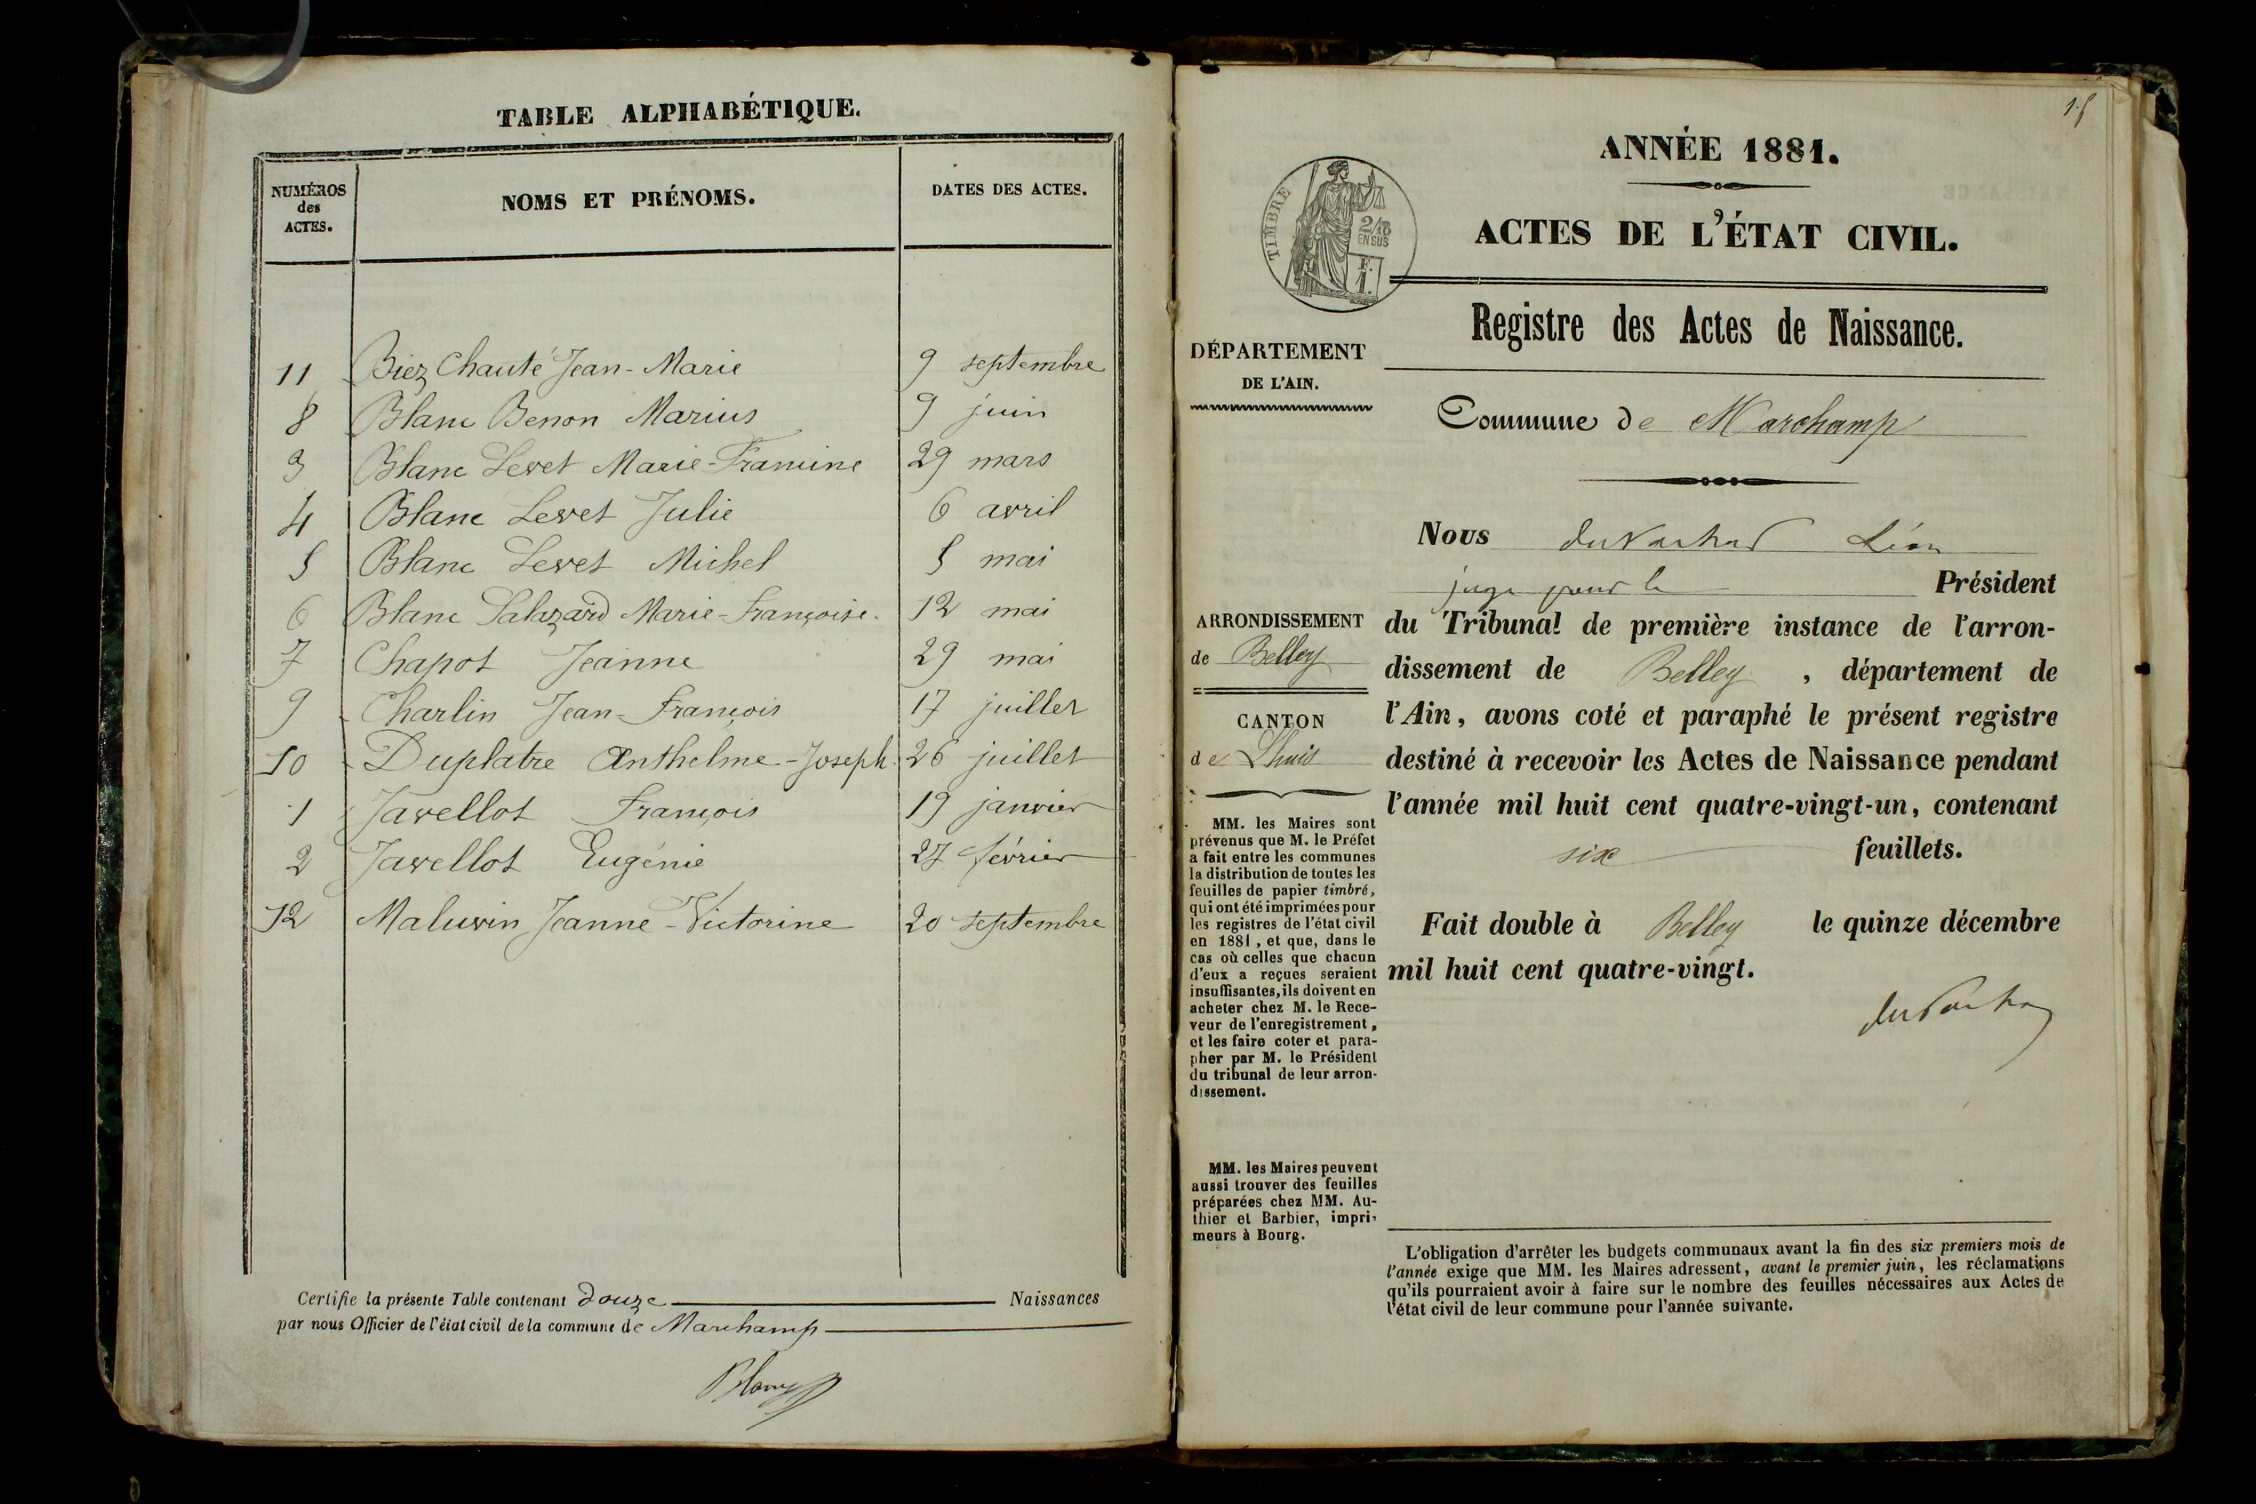 TABLE ALPHABÉTIQUE.
NUMÉROS
des
ACTES.
NOMS ET PRÉNOMS.
DATES DES ACTES.
11 Biez Chauté Jean-Marie 9 septembre
8 Blanc Benon Marius 9 juin
3 Blanc Levet Marie-Francine 29 mars
4 Blanc Levet Julie 6 avril
5 Blanc Levet Michel 5 mai
6 Blanc Salazard Marie-Françoise. 12 mai
7 Chapot Jeanne 29 mai
9 Charlin Jean-François 17 juillet
10 Duplatre Anthelme-Joseph 26 juillet
1 Javellot François 19 janvier
2 Javellot Eugénie 27 février
12 Maluvin Jeanne-Victorine 20 septembre
Certifie la présente Table contenant douze Naissances
par nous Officier de l'état civil de la commune de Marchamp
Blanc
15
ANNÉE 1881.
TIMBRE
2/10
EN SUS
F.
1.
ACTES DE L'ÉTAT CIVIL.
Registre des Actes de Naissance.
DÉPARTEMENT
DE L'AIN.
Commune de Marchamp
Nous Léon
juge pour le Président
du Tribunal de première instance de l'arron-
dissement de Belley, département de
l'Ain, avons coté et paraphé le présent registre
destiné à recevoir les Actes de Naissance pendant
l'année mil huit cent quatre-vingt-un, contenant
six feuillets.
Fait double à Belley le quinze décembre
mil huit cent quatre-vingt.
ARRONDISSEMENT
de Belley
CANTON
de Lhuis
MM. les Maires sont
prévenus que M. le Préfet
a fait entre les communes
la distribution de toutes les
feuilles de papier timbré,
qui ont été imprimées pour
les registres de l'état civil
en 1881, et que, dans le
cas où celles que chacun
d'eux a reçues seraient
insuffisantes, ils doivent en
acheter chez M. le Rece-
veur de l'enregistrement,
et les faire coter et para-
pher par M. le Président
du tribunal de leur arron-
dissement.
MM. les Maires peuvent
aussi trouver des feuilles
préparées chez MM. Au-
thier et Barbier, impri-
meurs à Bourg.
L'obligation d'arrêter les budgets communaux avant la fin des six premiers mois de
l'année exige que MM. les Maires adressent, avant le premier juin, les réclamations
qu'ils pourraient avoir à faire sur le nombre des feuilles nécessaires aux Actes de
l'état civil de leur commune pour l'année suivante.